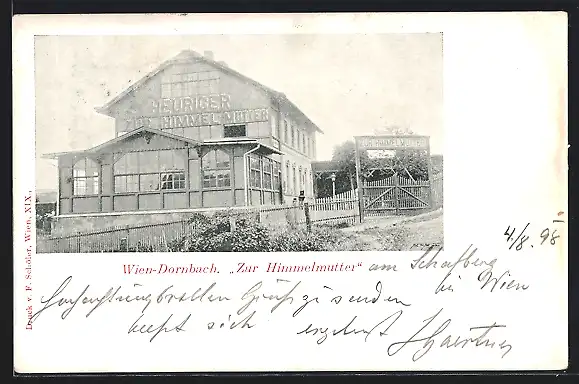 HEURIGER
ZUR HIMMELMUTTER
ZUR HIMMELMUTTER
4/8. 98
Wien-Dornbach. „Zur Himmelmutter“ am Schafberg
bei Wien
Hochachtungsvollen Gruß zu senden
sich ergebenst
Druck v. F. Schöler, Wien, XIX.